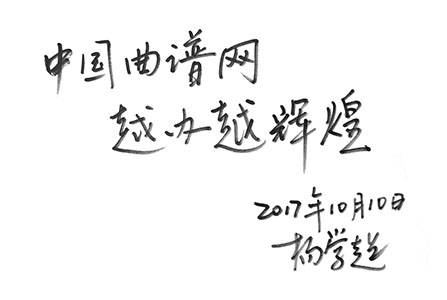 中国曲谱网
越办越辉煌
2017年10月10日
杨学超